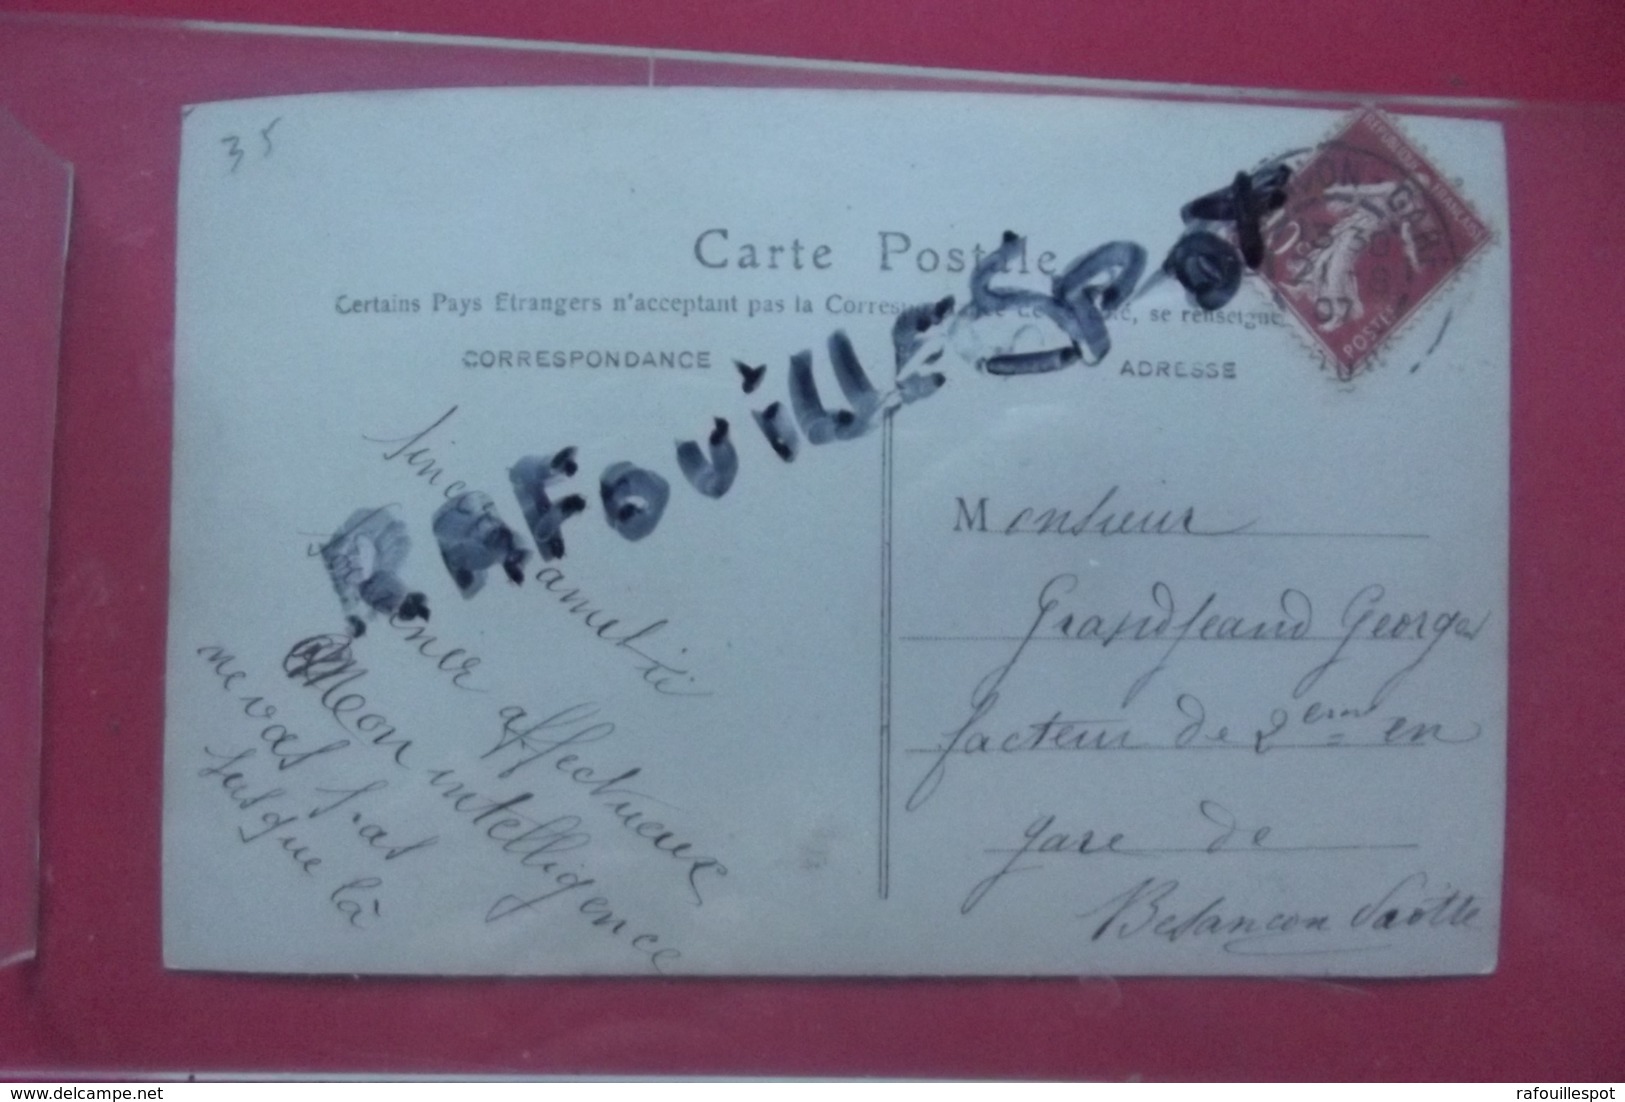 35
Carte Postale
Certains Pays Etrangers n'acceptant pas la se
CORRESPONDANCE
ADRESSE
RAFOUILLESPOT
REPUBLIQUE FRANÇAISE
10c
POSTES
GARE
3 30
07
amitié
affectueux
Mon intelligence
ne vas pas
jusque là
Monsieur
Grandjeand Georges
facteur de 2eme en
gare de
Besançon
www.delcampe.net
rafouillespot